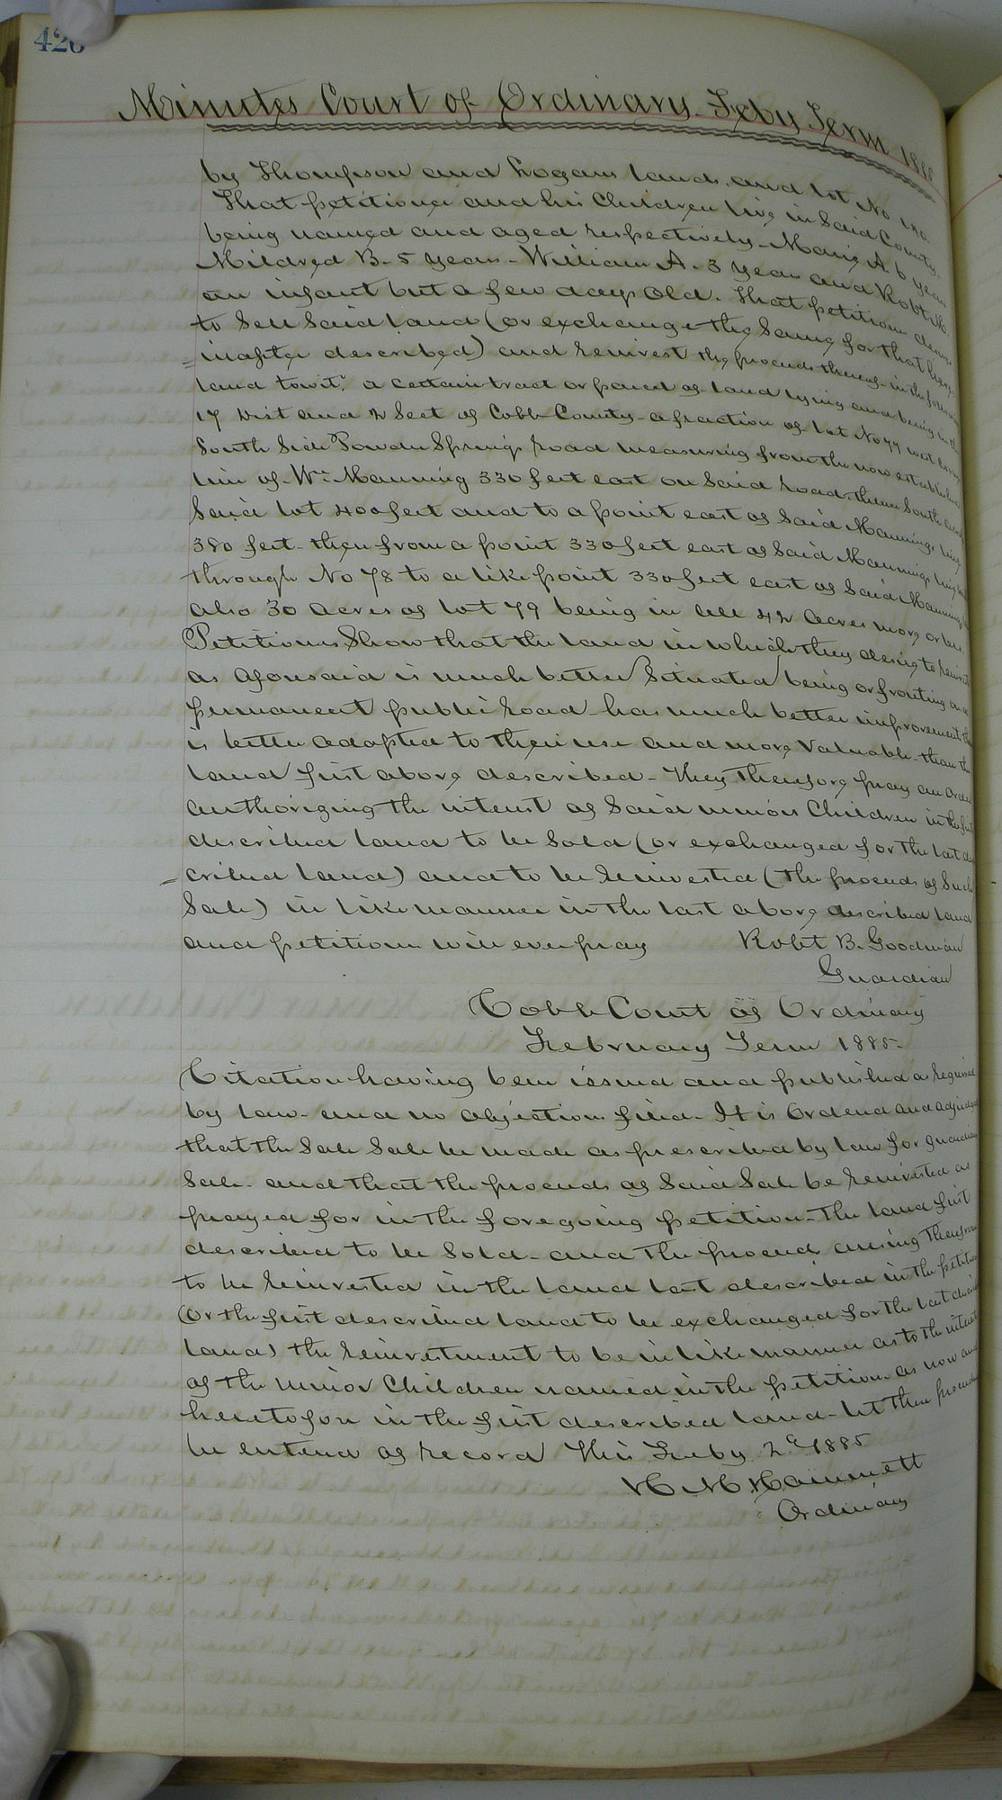 Minutes Court of Ordinary Feby Term 188
by Thompson and Logans lands and lot No 180
That petitioner and his Children live in Said County,
being named and aged respectively Marie A. 6 years
Mildred B. 5 years - William A. 3 years and Robt M.
an infant but a few days Old. That petitioner desires
to Sell Said Land (or exchange the Same for that here-
=inafter described) and reinvest the proceeds thereof in the following
land towit: a certain tract or parcel of land lying and being in the
17 Dist and 2 Sect of Cobb County a fraction of lot No 77
South Side Powder Springs road measuring from the now established
line of Wm Manning 330 feet east on Said road, thence South
Said lot 400 feet and to a point east of Said Mannings line
380 feet. then from a point 330 feet east of Said Mannings line
through No 78 to a like point 330 feet east of Said Mannings
also 30 acres of lot 79 being in all 42 acres more or less
Petitioners Show that the land in which they desire to reinvest
as aforesaid is much better Situated being or fronting on a
permanent public road has much better improvements
is better adapted to their use and more valuable than the
land first above described - They Therefore pray an Order
authorizing the interest of Said minor Children in the first
described land to be Sold (or exchanged for the last des
=cribed land) and to be reinvested (the proceeds of Such
Sale) in like manner in the last above described land
and petitioners will ever pray Robt B. Goodman
Guardian
Cobb Court of Ordinary
February Term 1885-
Citation having been issued and published as required
by law and no objections filed - It is Ordered and adjudged
that the Sale Sale be made as prescribed by law for guardians
Sale - and that the proceeds of Said Sale be reinvested as
prayed for in the foregoing petition - The land first
described to be Sold - and The proceeds arising Therefrom
to be reinvested in the land last described in the petition
(Or the first described land to be exchanged for the last described
land) the reinvestment to be in like manner as to the interest
of the minor Children named in the petition as now and
heretofore in the first described land - let these proceedings
be entered of record This Feby 2d 1885
H M Hammett
Ordinary